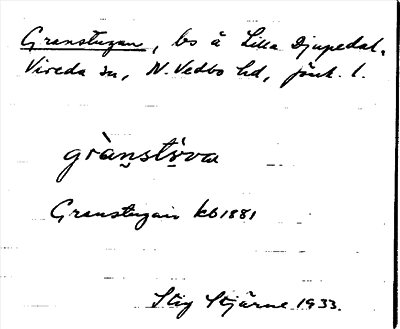 Granstugan, bs å Lilla Djupedal,
Vireda sn, N. Vedbo hd, Jönk. l.
grànstö̀va
Granstugan kb 1881
Stig Stjärne 1933.